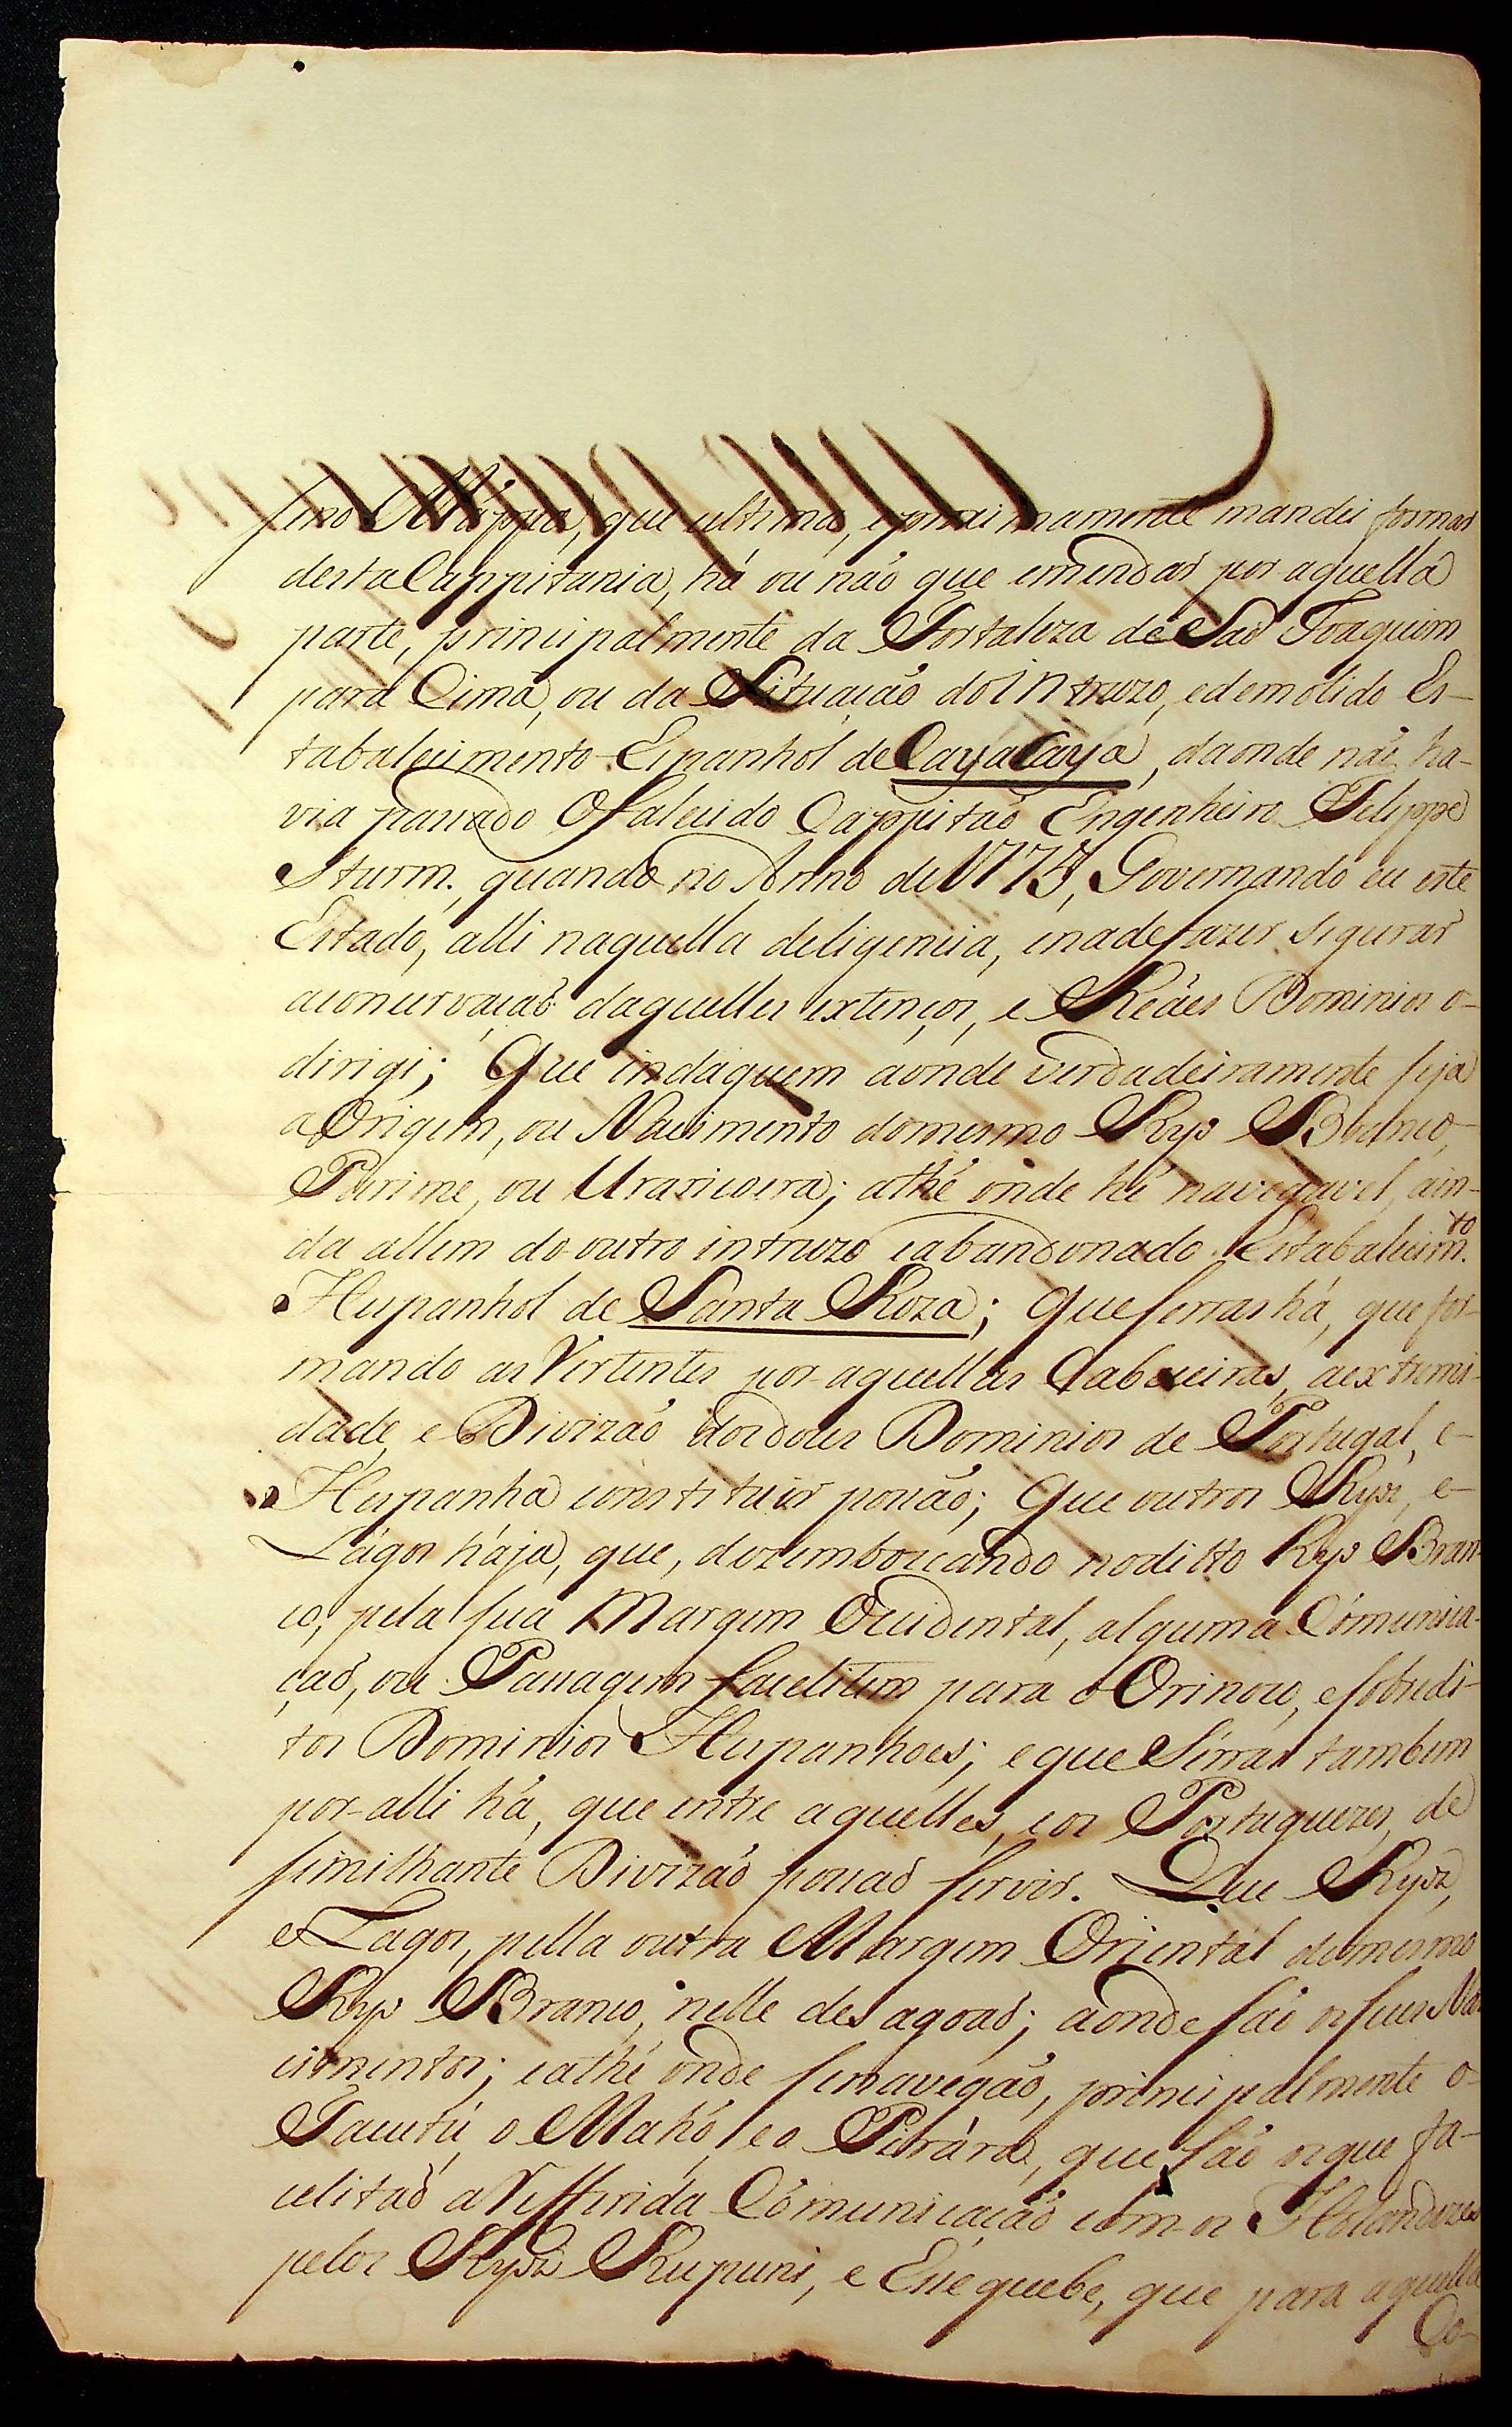 se no Máppa, que ultima, e proximamente mandei formar
desta Cappitania, há ou não que emendar por aquella
parte, principalmente da Fortaleza de Saõ Joaquim
para Cima, ou da Situação do intruzo, e demolido Es-
tabalecimento Espanhol de Caya Caya, daonde naõ ha-
via passado O falecido Cappitaõ Engenheiro Felippe
Sturm, quando no Anno de 1775, Governando eu este
Estado, alli naquella deligencia, e na de fazer segurar
a conservaçaõ daquelles extenços, e Reáes Dominios o-
dirigi; Que indaguem aonde verdadeiramente seja
a Origem, ou Nascimento do mesmo Ryo Branco,
Parime, ou Uraricoera; athé onde hé navegavel, ain-
da allem do outro intruzo e abandonado Estabalecim.to
Hespanhól de Santa Roza; Que serras há, que for-
mando as Vertentes por aquellas Cabeceiras, a extremi-
dade, e Divizaõ dos dous Dominios de Portugal, e-
Hespanha constituir possaõ; Que outros Ryos, e-
Lágos hája, que, dezemboccando no ditto Ryo Bran-
co, pela sua Margem Occidental, alguma Cómunica-
çaõ, ou Passagem facelitem para o Orinoco, e sobredi-
tos Dominios Hespanhoes; e que Sérras tambem
por alli há, que entre aquelles, e os Portuguezes, de
similhante Divizaõ possaõ servir. Que Ryos,
e Lagos, pella outra Margem Oriental do mesmo
Ryo Branco, nelle desagoaõ; aonde saõ os seus Nas-
cimentos; e athé onde se navegaõ, principalmente o-
Tacutú, o Mahó, e o Pirára, que saõ os que fa-
celitaõ a refferida Cómunicaçaõ com os Holandezes
pelos Ryos Rupuni, e Essequebe, que para aquella
Co-